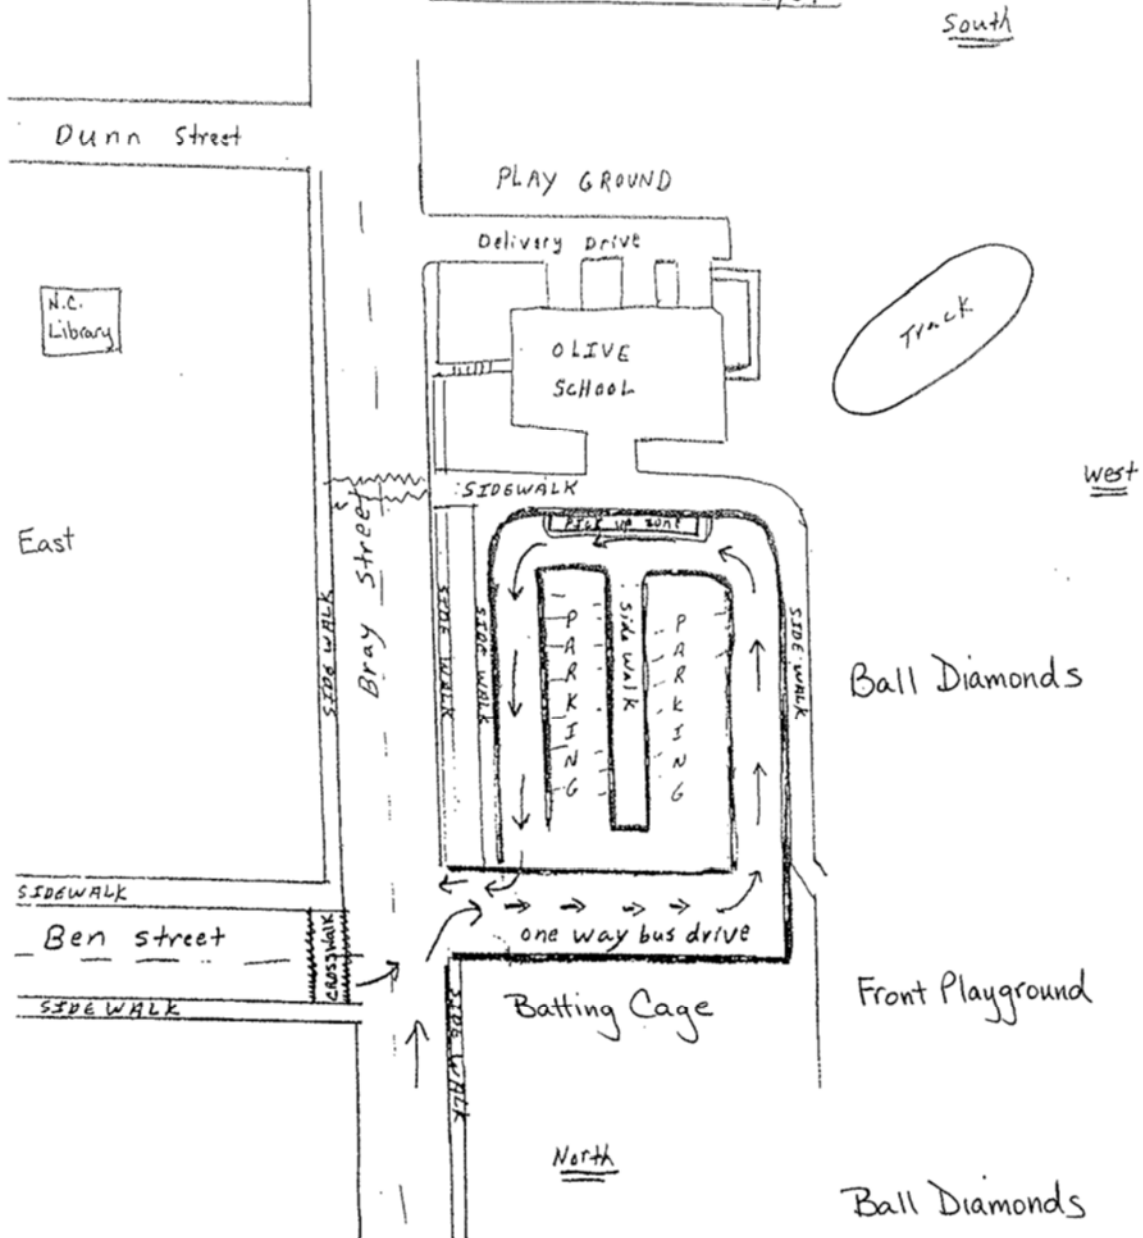 South
Dunn Street
PLAY GROUND
Delivery Drive
N.C.
Library
OLIVE
SCHOOL
Track
West
SIDEWALK
East
Pick up zone
Bray Street
SIDE WALK
SIDE WALK
SIDE WALK
PARKING
Side Walk
PARKING
SIDE WALK
Ball Diamonds
SIDEWALK
Ben street
CROSSWALK
one way bus drive
SIDE WALK
SIDE WALK
Batting Cage
Front Playground
North
Ball Diamonds